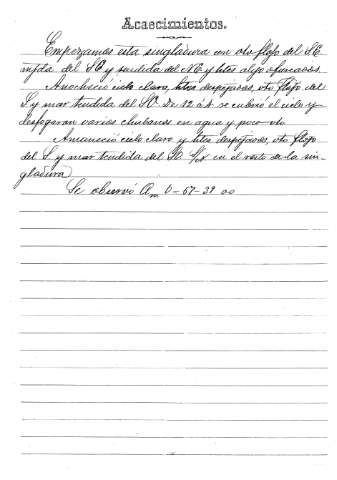 Acaecimientos.
Empezamos esta singladura con vto flojo del SE
mfda del SE y tendida del NE y htes algo afoscados.
Anocheció cielo claro, htes despejados, vto flojo del
S y mar tendida del SO. De 12 á 4 se cubrió el cielo y
desfogaron varios chubascos en agua y poco vto
Amaneció cielo claro y htes despejados, vto flojo
del S y mar tendida del SO en el resto de la sin-
gladura
Se observó Am 0-57-39